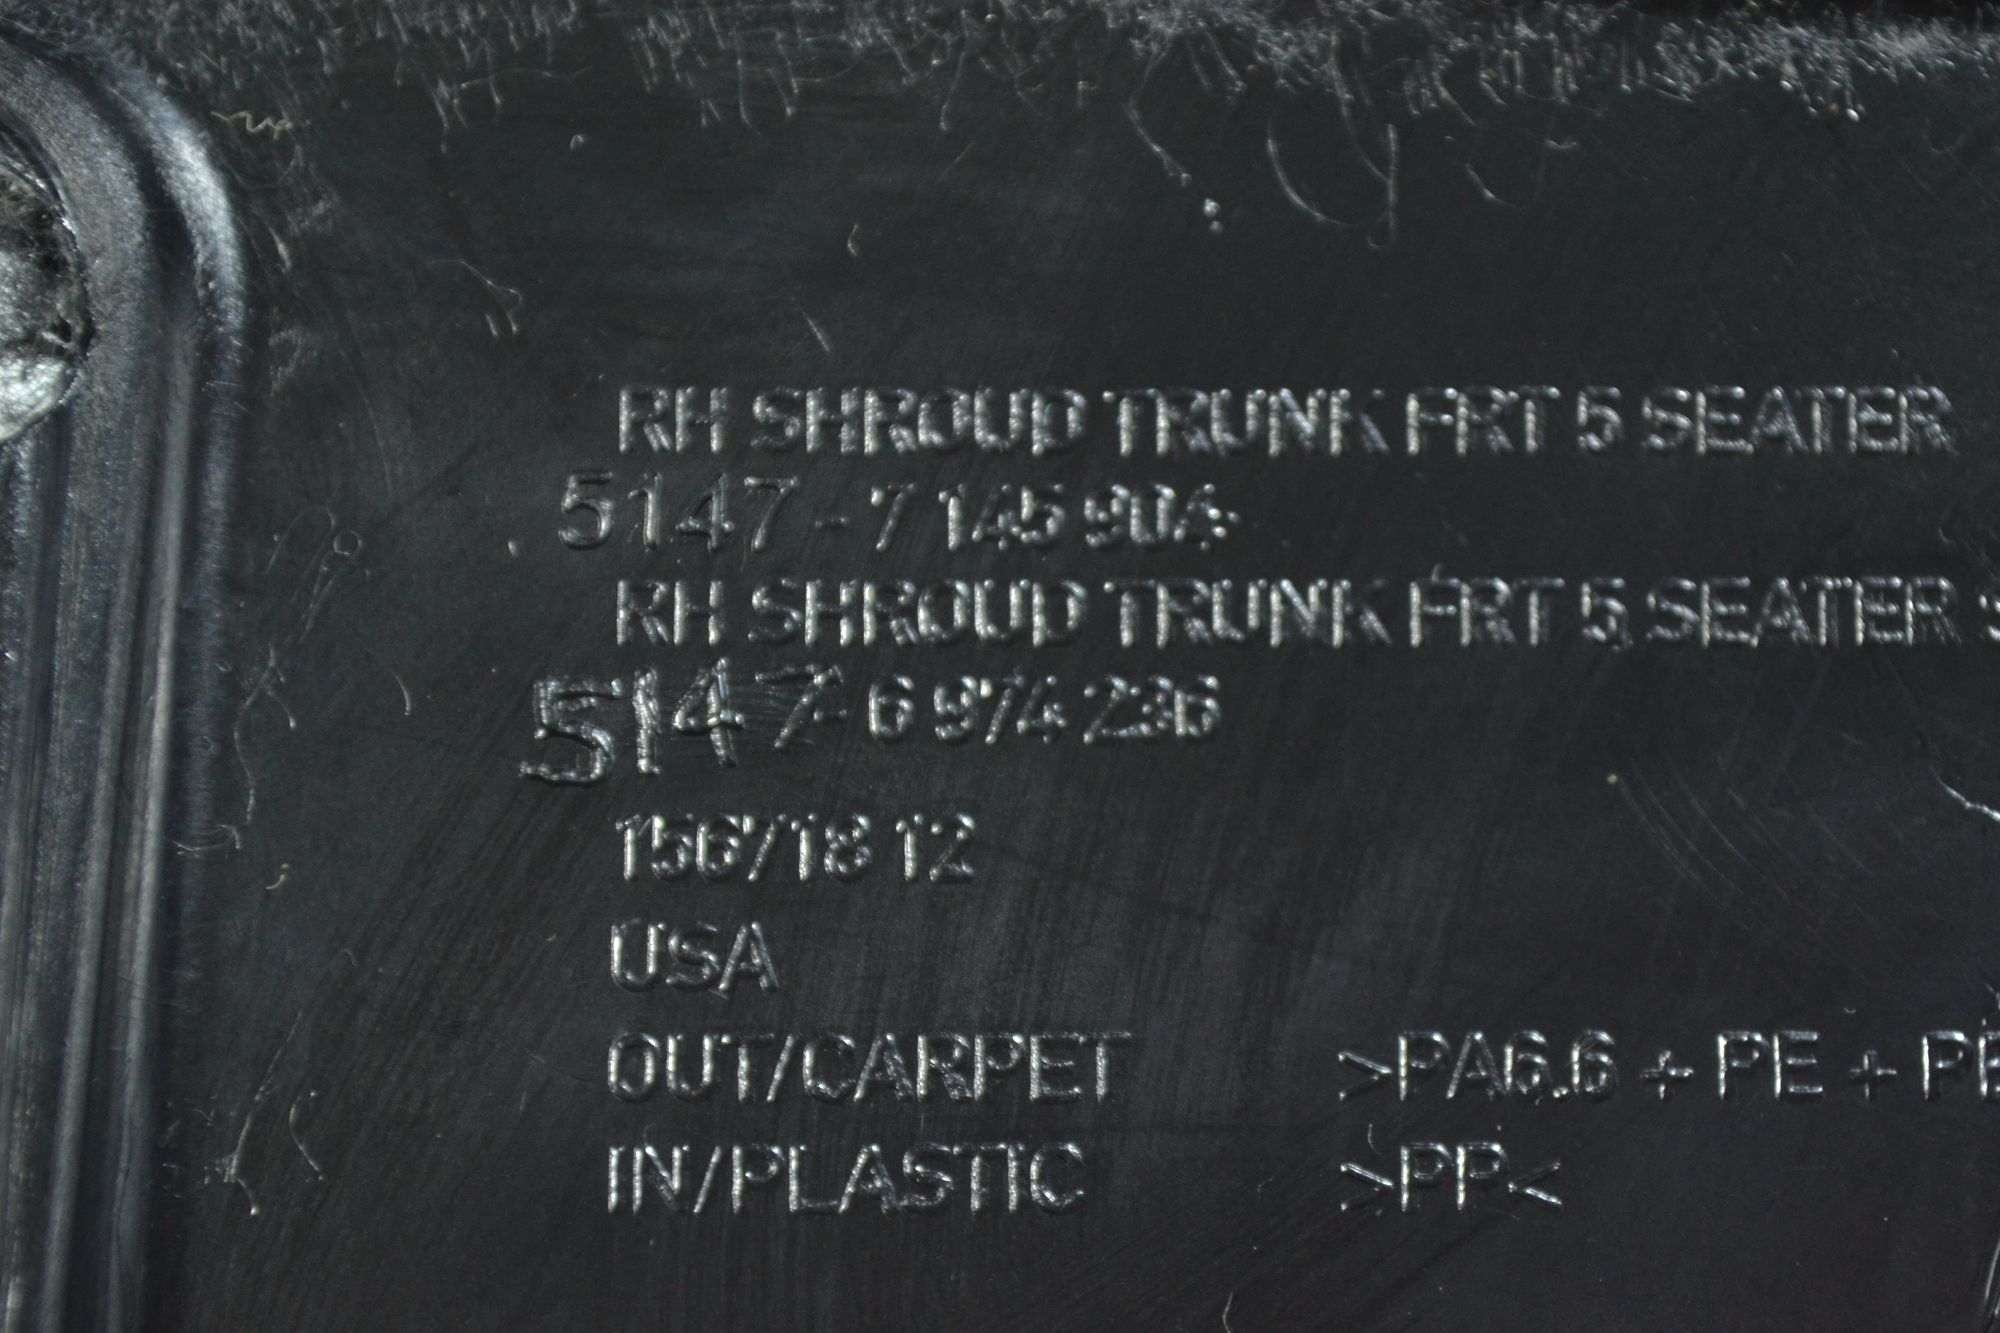 RH SHROUD TRUNK FRT 5 SEATER
5147-7 145 904
RH SHROUD TRUNK FRT 5 SEATER
5147-6 974 236
156718 12
USA
OUT/CARPET >PA6.6 + PE +
IN/PLASTIC >PP<